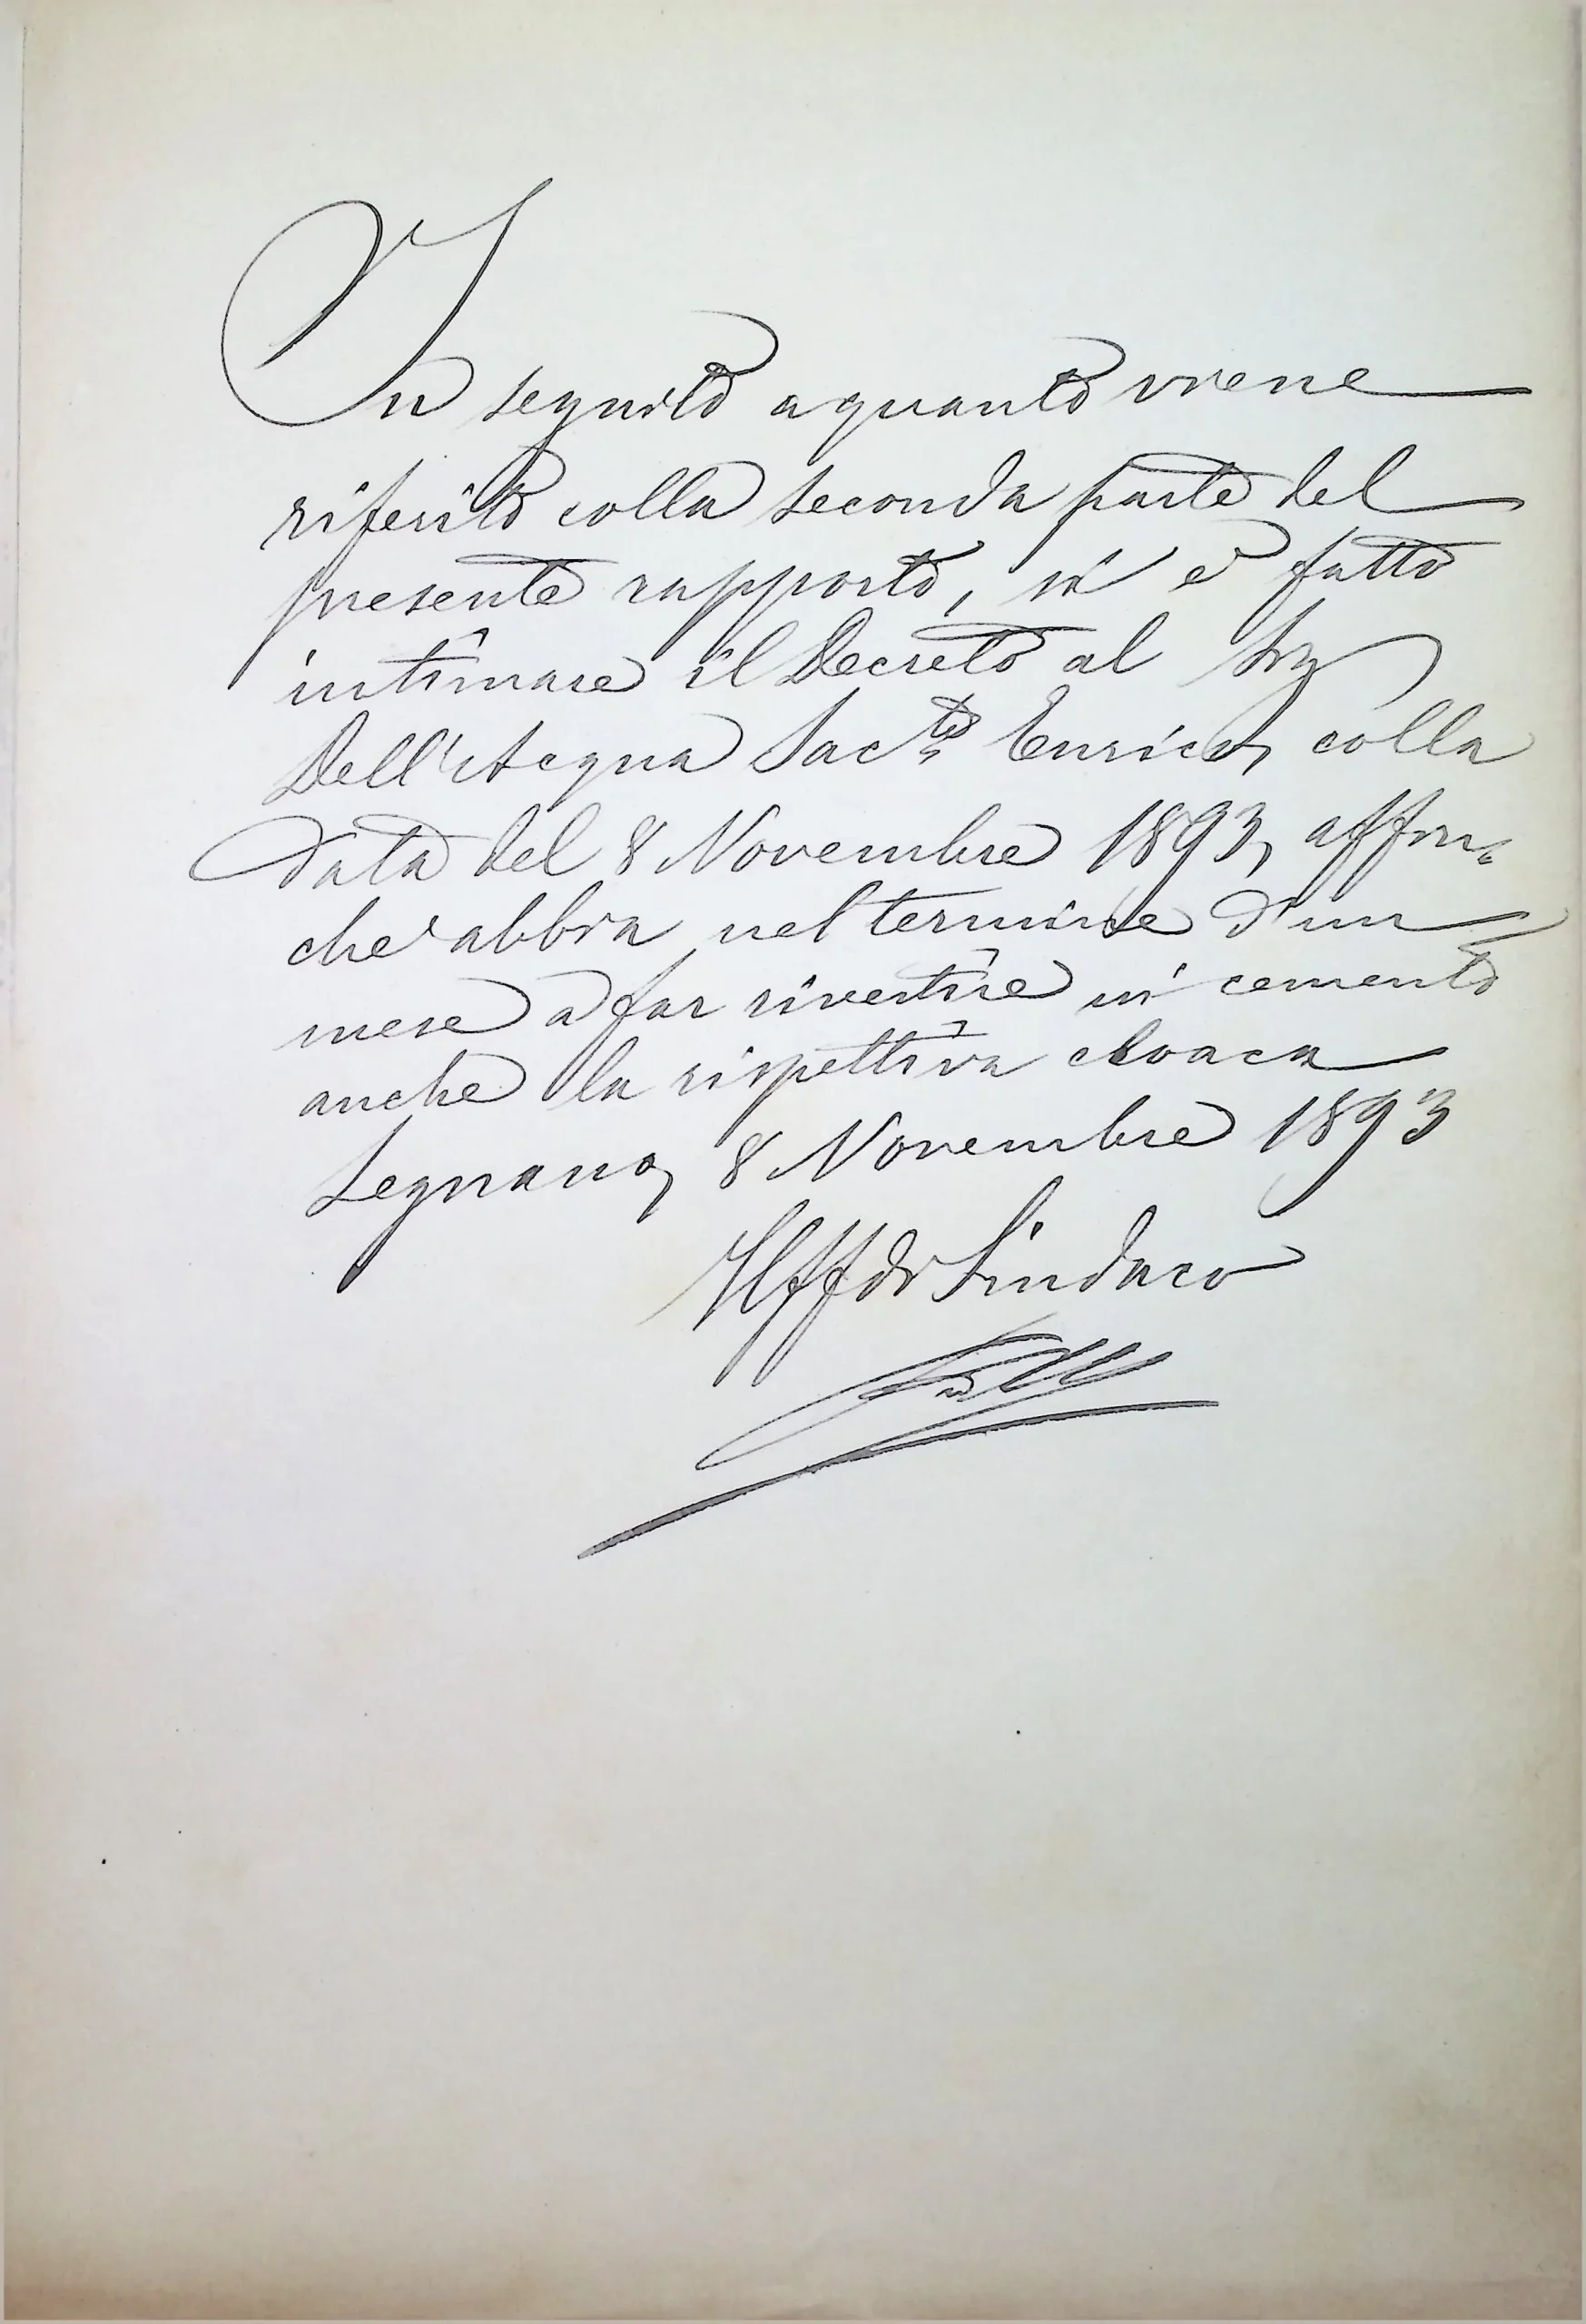 In seguito a quanto viene
riferito colla seconda parte del
presente rapporto, si è fatto
intimare il Decreto al Sig
Dell'Acqua Sacte Enrico, colla
data del 8 Novembre 1893, affin=
chè abbia nel termine d'un
mese a far rivestire in cemento
anche la rispettiva cloaca
Legnano, 8 Novembre 1893
Il ff di Sindaco